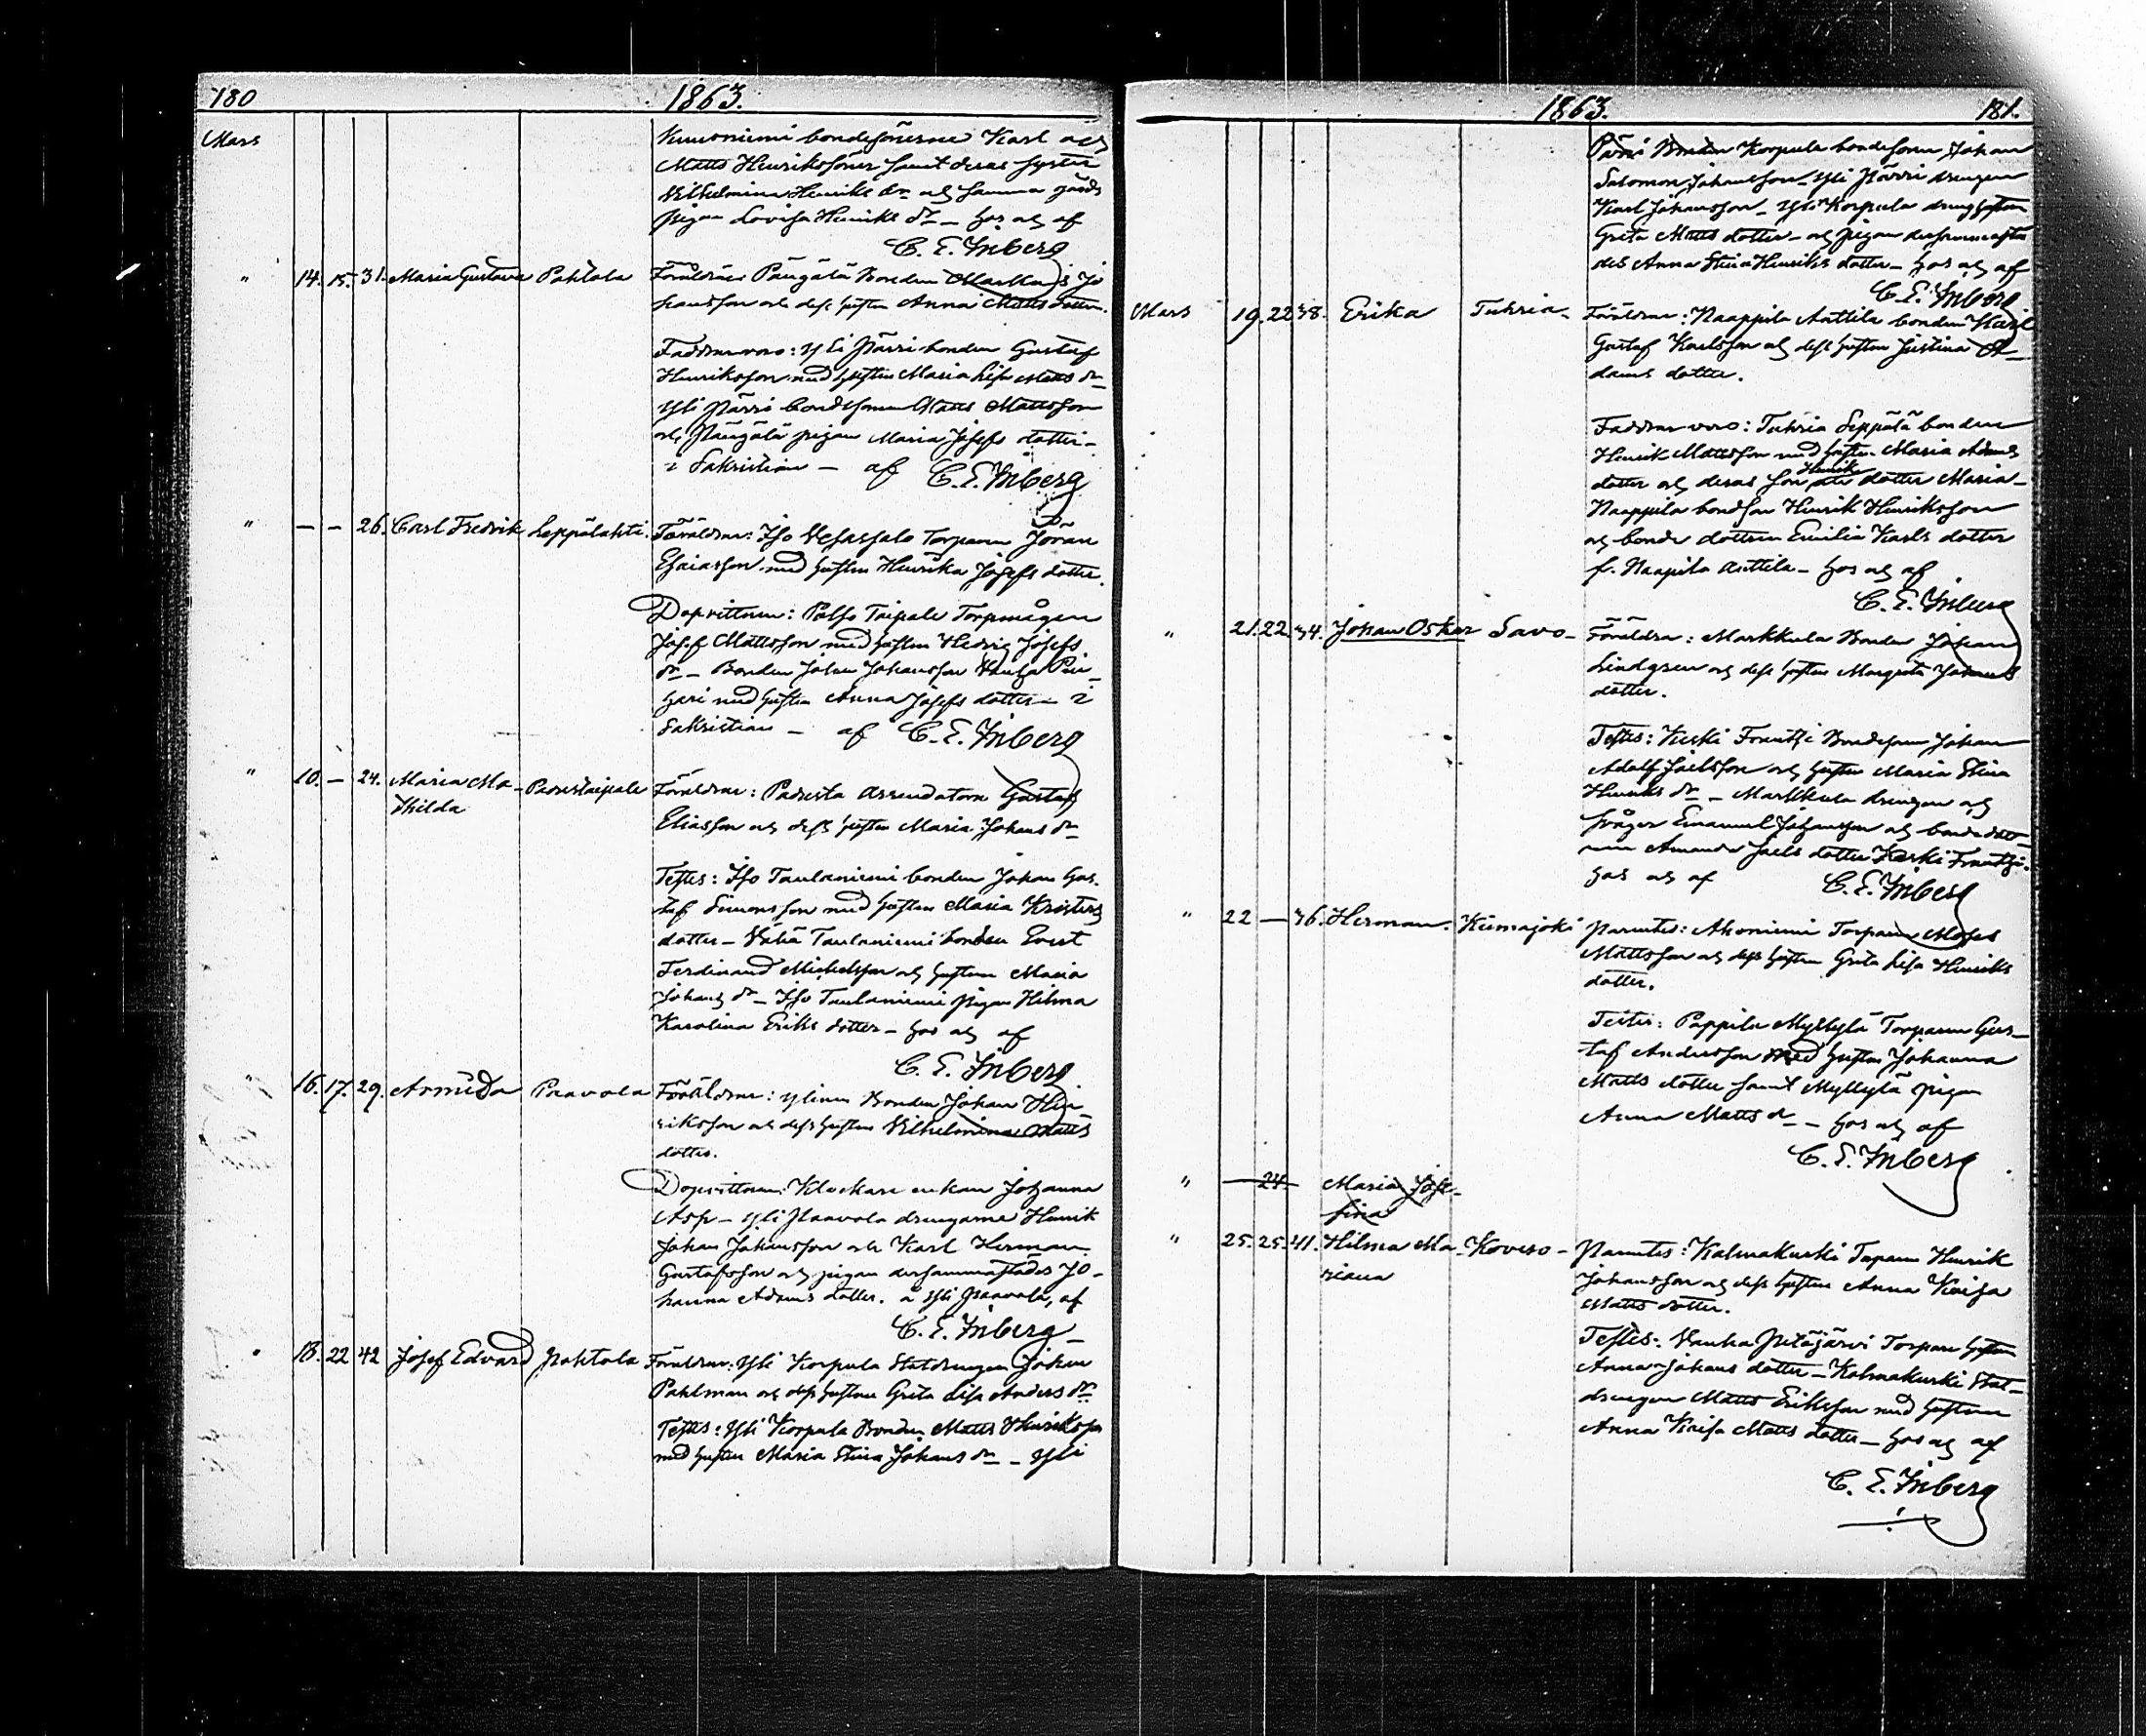 180
1863.
Mars
Kuusniemi bondesönerne Karl och
Matts Henrikssöner samt deras syster
Vilhelmina Henriks dr och samma gårds
pigan Lovisa Henriks dr — hos och af
C. E. Inberg
" 14. 15. 31. Maria Gustava Pohtola Föräldrar: Pängälä Bonden Markus Jo
hansson och dess hustru Anna Matts dotter.
Faddrar voro: Yli Pärri bonden Gustaf
Henriksson med hustru Maria Lisa Matts dr
Yli Pärri bondesonen Matts Mattsson
och Pängälä pigan Maria Josefs dotter —
i Sakristian — af C. E. Inberg
" — — 26. Carl Fredrik Leppälahti. Föräldrar: Iso Vesasalo Torparen Jöran
Esaiasson med hustru Henrika Josefs dotter.
Dopvittnen: Palso Taipale Torpmågen
Josef Mattsson med hustru Hedvig Josefs
dr — Bonden Johan Johansson
med hustru Anna Josefs dotter — i
Sakristian — af C. E. Inberg
" 10. — 24. Maria Ma- Padustaipale Föräldrar: Padusta Arrendatorn Gustaf
thilda
Eliasson och dess hustru Maria Johans dr
Testes: Iso Taulaniemi bonden Johan Gus-
taf Simonsson med hustru Maria Kristers
dotter — Vähä Taulaniemi bonden Evert
Ferdinand Michelsson och hustrun Maria
Johans dr — Iso Taulaniemi pigan Hilma
Karolina Eriks dotter — hos och af
C. E. Inberg
" 16. 17. 29. Armida Paavola Föräldrar: Ylinen Bonden Johan Hen-
riksson och dess hustru Vilhelmina Matts
dotter.
Dopvittnen: Klockare enkan Johanna
Asp — Yli Paavola drengarne Henrik
Johan Johansson och Karl Herman
Gustafsson och pigan dersammastädes Jo-
hanna Adams dotter. å Yli Paavola, af
C. E. Inberg
" 18. 22 42 Josef Edvard Pohtola Föräldrar: Yli Korpula Statdrengen Johan
Pahlman och dess hustru Greta Lisa Anders dr
Testes: Yli Korpula Bonden Matts Henriksson
med hustru Maria Stina Johans dr — Yli
1863.
181.
Pärri Bonden Korpula bondesonen Johan
Salomon Johansson — Yli Pärri drengen
Karl Johansson — Yli Korpula dreng hustrun
Greta Matts dotter — och pigan dersammastä
des Anna Stina Henriks dotter — hos och af
C. E. Inberg
Mars 19. 22 38. Erika Tuhria — Föräldrar: Naappila Anttila bonden Karl
Gustaf Karlsson och dess hustru Justina A-
dams dotter.
Faddrar voro: Tuhria Seppälä bonden
Henrik Mattsson med hustru Maria Adams
dotter och deras son Henrik dotter Maria —
Naappila bondson Henrik Henriksson
och bonde dottren Emilia Karls dotter
f. Naapila Anttila — hos och af
C. E. Inberg
" 21. 22. 34. Johan Oskar Savo — Föräldrar: Markkula Bonden Johan
Lindgren och dess hustru Margeta Johans
dotter.
Testes: Keski Frantsi Bondeson Johan
Adolf Joelsson och hustru Maria Stina
Henriks dr — Markkula drengen och
svåger Emanuel Johansson och bondedott-
ren Amanda Joels dotter Keski Frantsi.
hos och af C. E. Inberg
" 22 — 36. Herman. Kiimajoki Parentes: Ahoniemi Torparen Moses
Mattsson och dess hustru Greta Lisa Henriks
dotter.
Testes: Pappila Myllylä Torparen Gus-
taf Andersson med hustru Johanna
Matts dotter samt Myllylä pigan
Anna Matts dr — hos och af
C. E. Inberg
" — 24. — Maria Jose-
fina
" 25. 25. 41. Hilma Ma- Kovero — Parentes: Kalmakurki Torparen Henrik
riana
Johansson och dess hustru Anna Kaisa
Matts dotter.
Testes: Vanha Pitäjärvi Torpare hustru
Anna Johans dotter — Kalmakurki Stat-
drengen Matts Eriksson med hustrun
Anna Kaisa Matts dotter — hos och af
C. E. Inberg